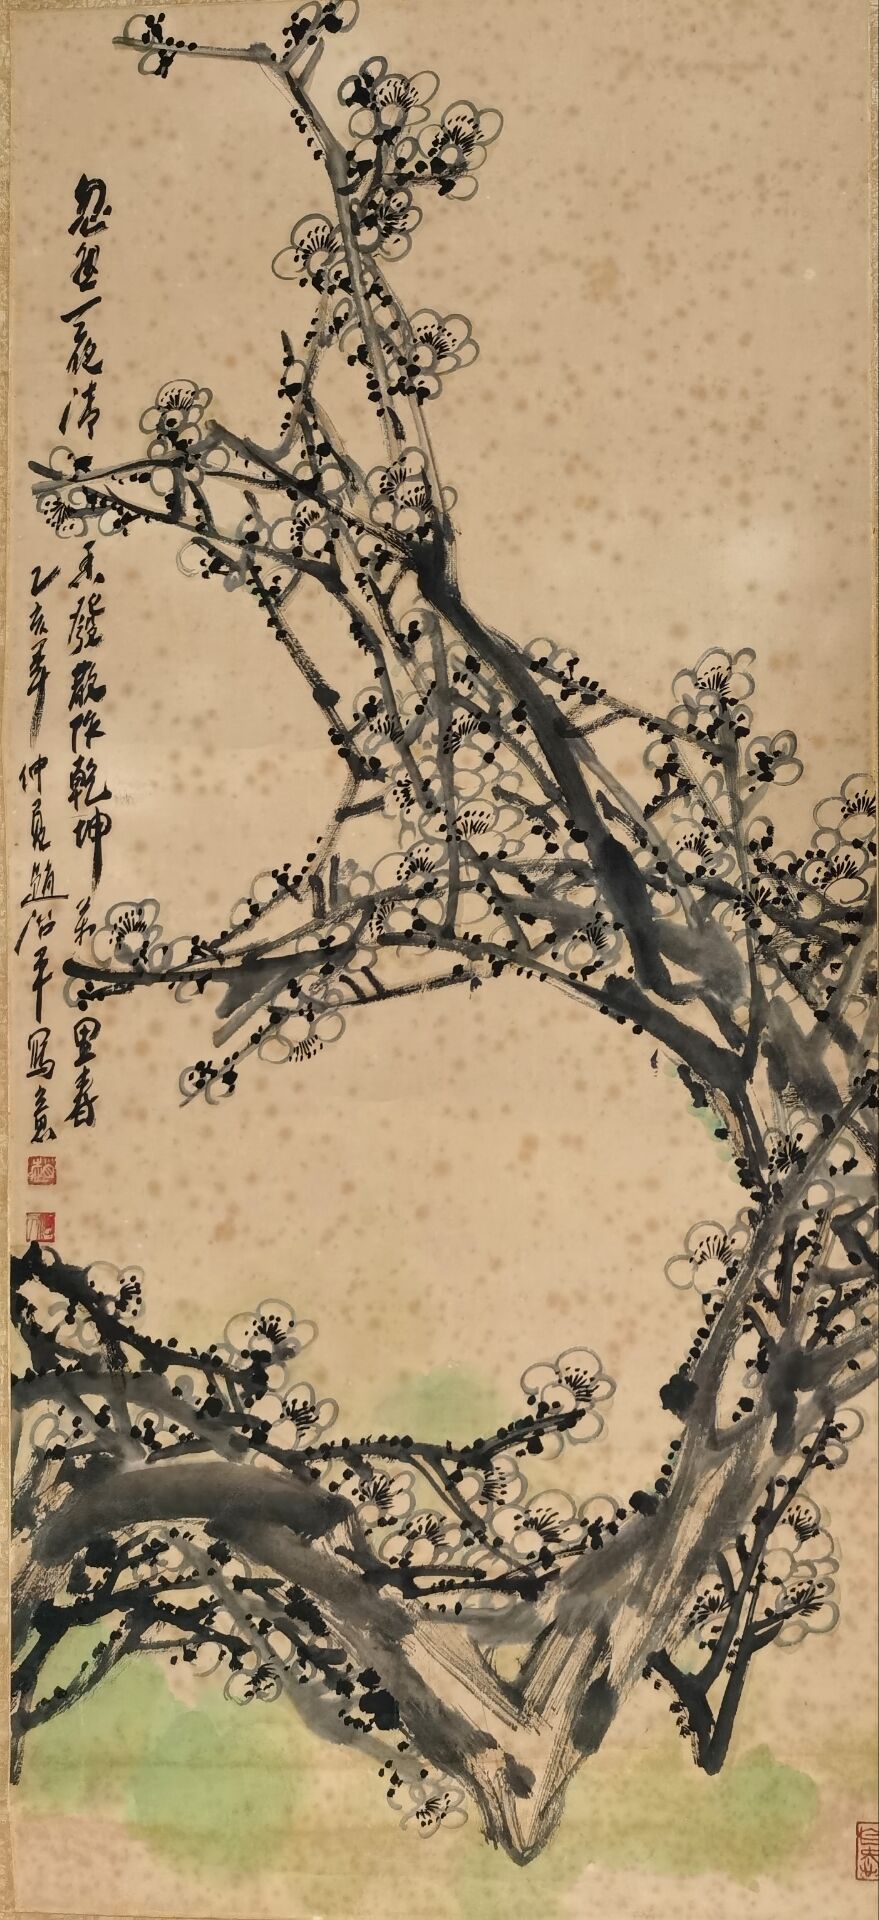 忽然一夜清香發散作乾坤萬里春
乙亥年仲夏趙治平寫意